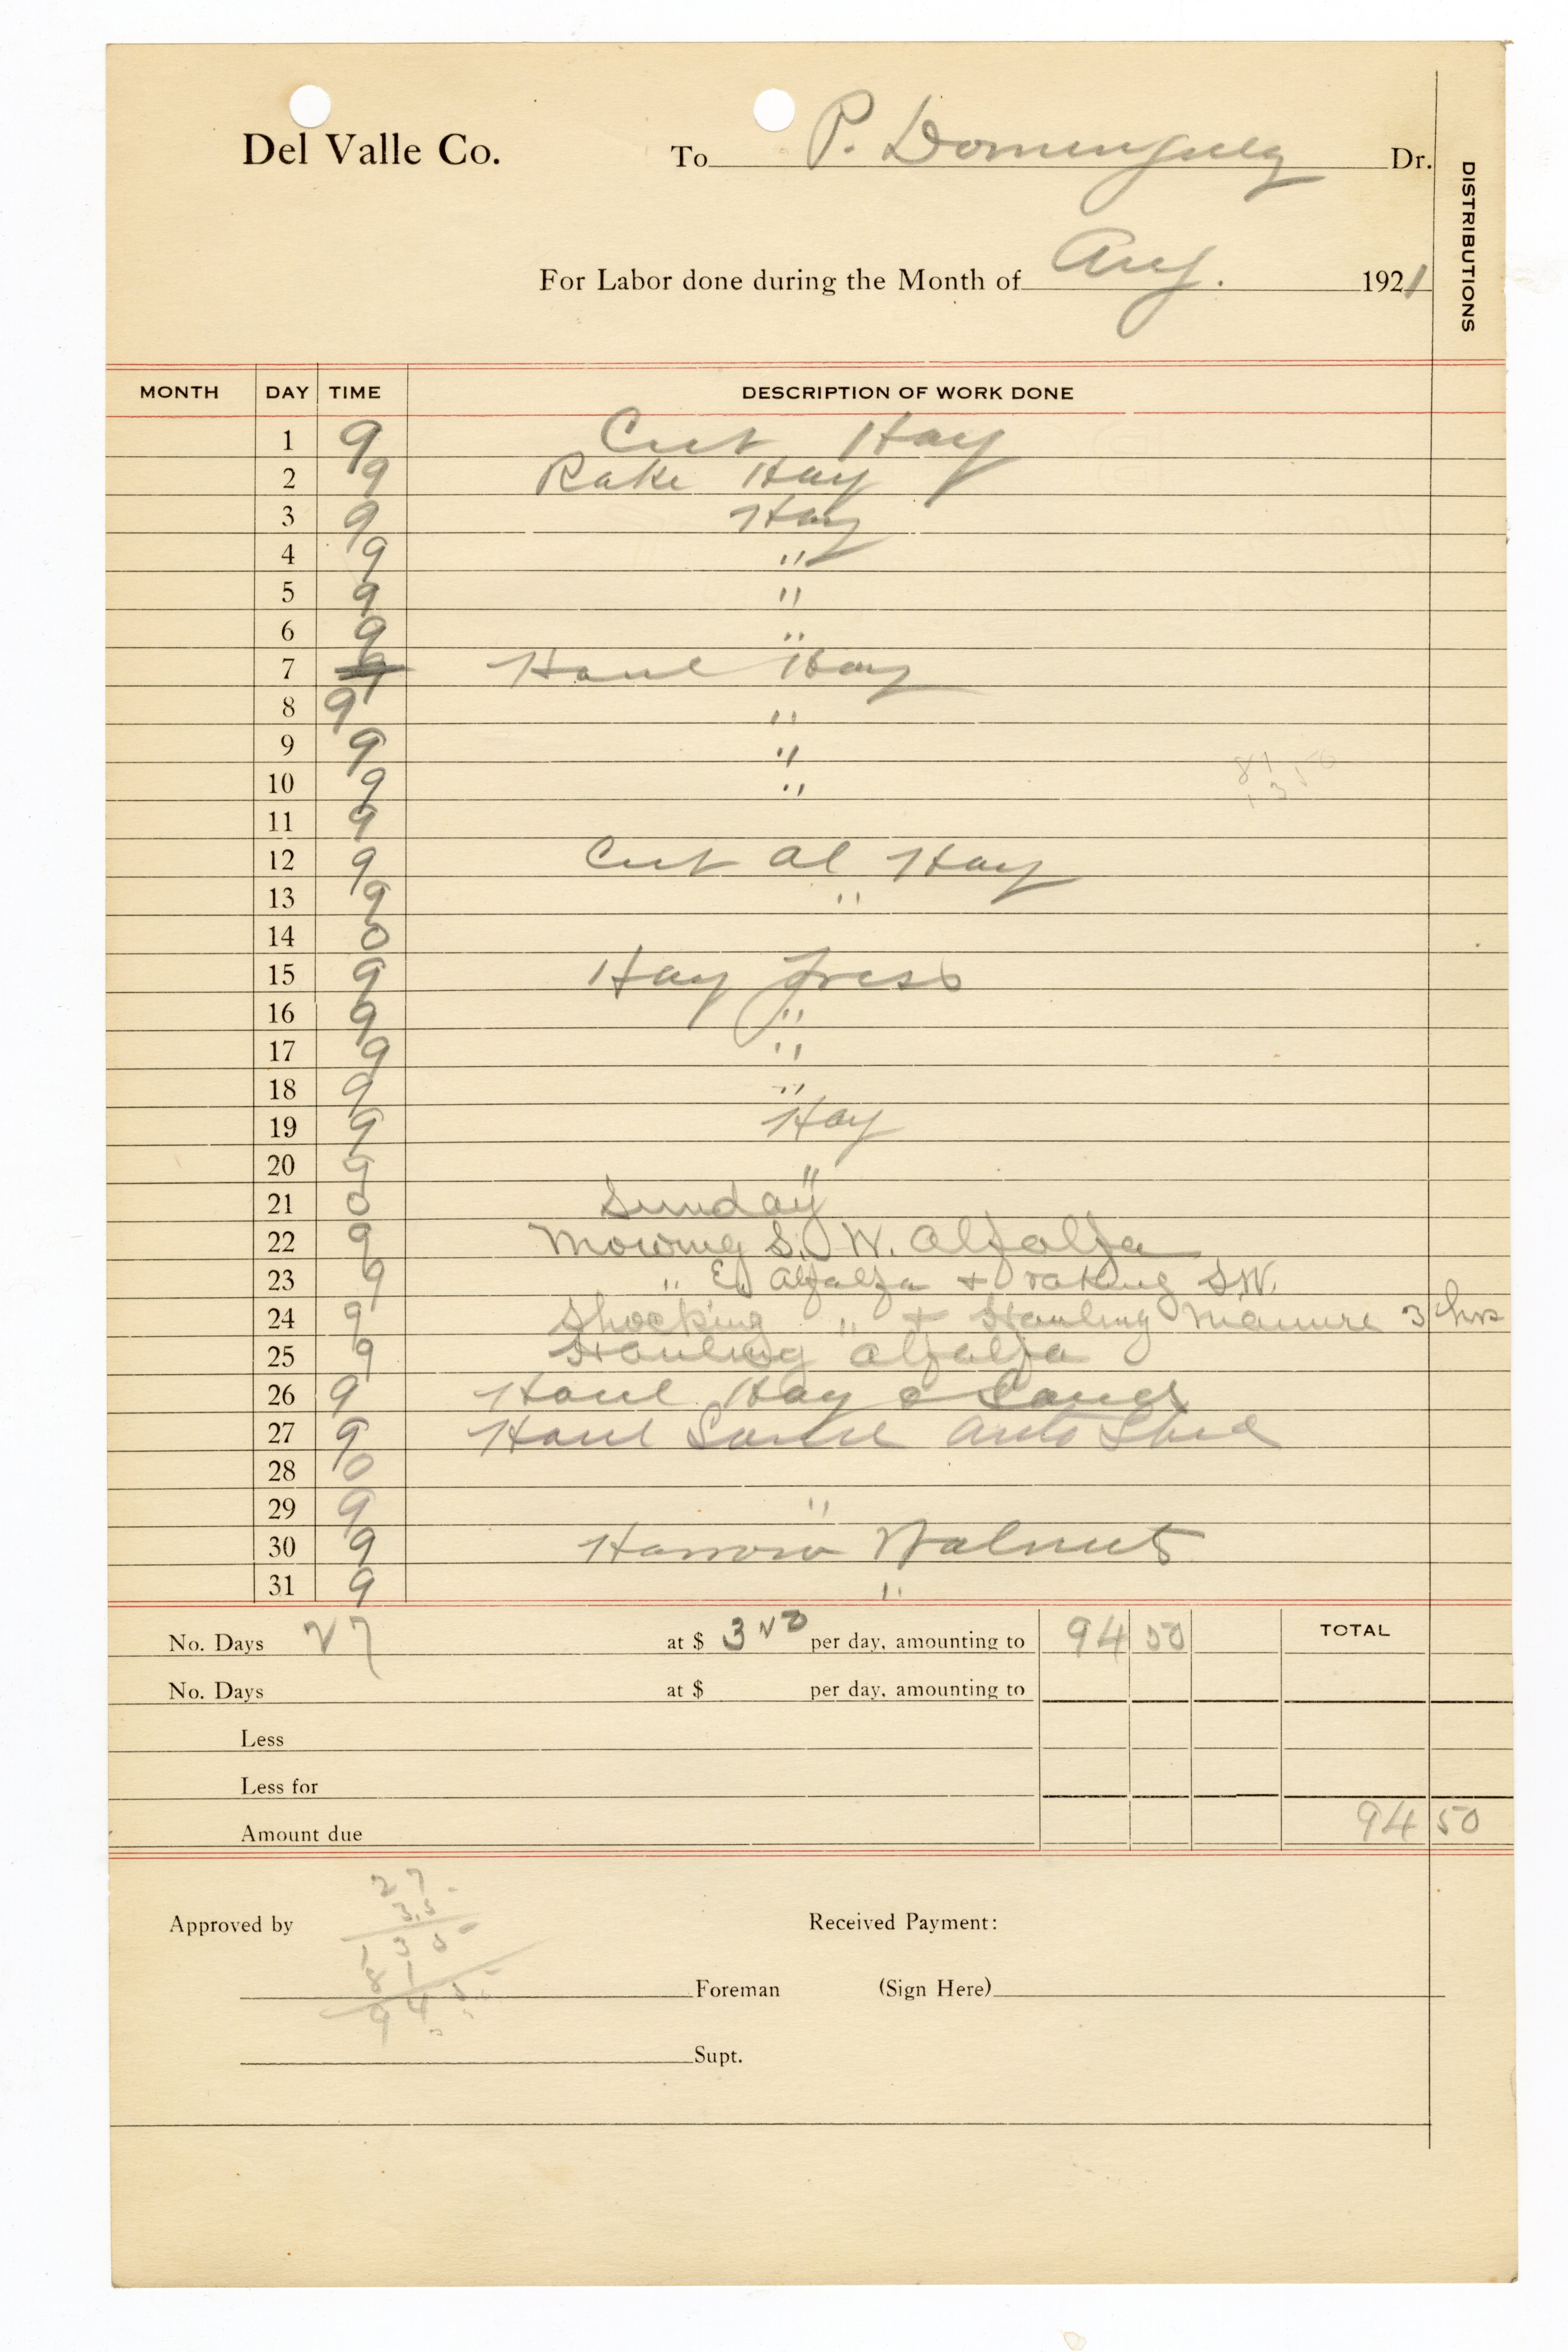 Del Valle Co. To P. Dominguez Dr.
DISTRIBUTIONS
For Labor done during the Month of Aug. 1921
MONTH DAY TIME DESCRIPTION OF WORK DONE
1 9 Cut Hay
2 9 Rake Hay
3 9 Hay
4 9 "
5 9 "
6 9 "
7 Haul Hay
8 9 "
9 9 "
10 9 "
11 9
12 9 Cut al Hay
13 9 "
14 0
15 9 Hay press
16 9 "
17 9 "
18 9 "
19 9 Hay
20 9 "
21 0 Sunday
22 9 Mowing S. W. Alfalfa
23 9 " E. Alfalfa + raking S.W.
24 9 Shocking " + Hauling Manure 3 hrs
25 9 Hauling alfalfa
26 9 Haul Hay &
27 9 Haul auto Shed
28 0
29 9 "
30 9 Harrow Walnuts
31 9 "
No. Days 27 at $ 3 50 per day, amounting to 94 50 TOTAL
No. Days at $ per day, amounting to
Less
Less for
Amount due 94 50
27
3.5
Approved by Received Payment:
135
81
Foreman (Sign Here)
94 5
Supt.